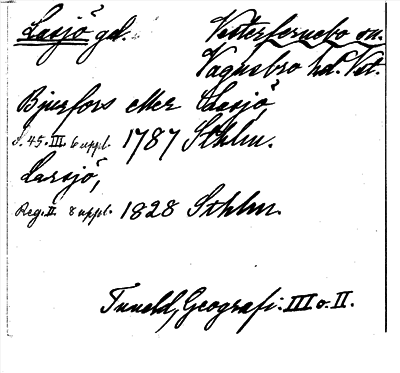 Lasjö gd. Vesterfernebo sn.
Vagnsbro hd. Vst.
Bjurfors eller Lasjö
s. 45. III. 6 uppl. 1787 Sthlm.
Larsjö,
Reg. II. 8 uppl. 1828 Sthlm.
Tuneld, Geografi: III o. II.